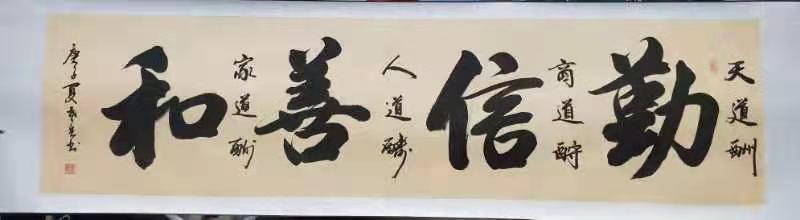 天道酬
勤
商道酬
信
人道酬
善
家道酬
和
庚子夏